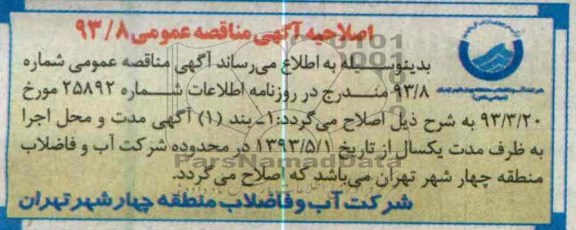 اصلاحیه آگهی مناقصه عمومی ۹۳/۸
بدینوسیله به اطلاع می‌رساند آگهی مناقصه عمومی شماره
۹۳/۸ مندرج در روزنامه اطلاعات شماره ۲۵۸۹۲ مورخ
۹۳/۳/۲۰ به شرح ذیل اصلاح می‌گردد:۱- بند (۱) آگهی مدت و محل اجرا
به ظرف مدت یکسال از تاریخ ۱۳۹۳/۵/۱ در محدوده شرکت آب و فاضلاب
منطقه چهار شهر تهران می‌باشد که اصلاح می‌گردد.
شرکت آب و فاضلاب منطقه چهار شهر تهران
ParsNamadData